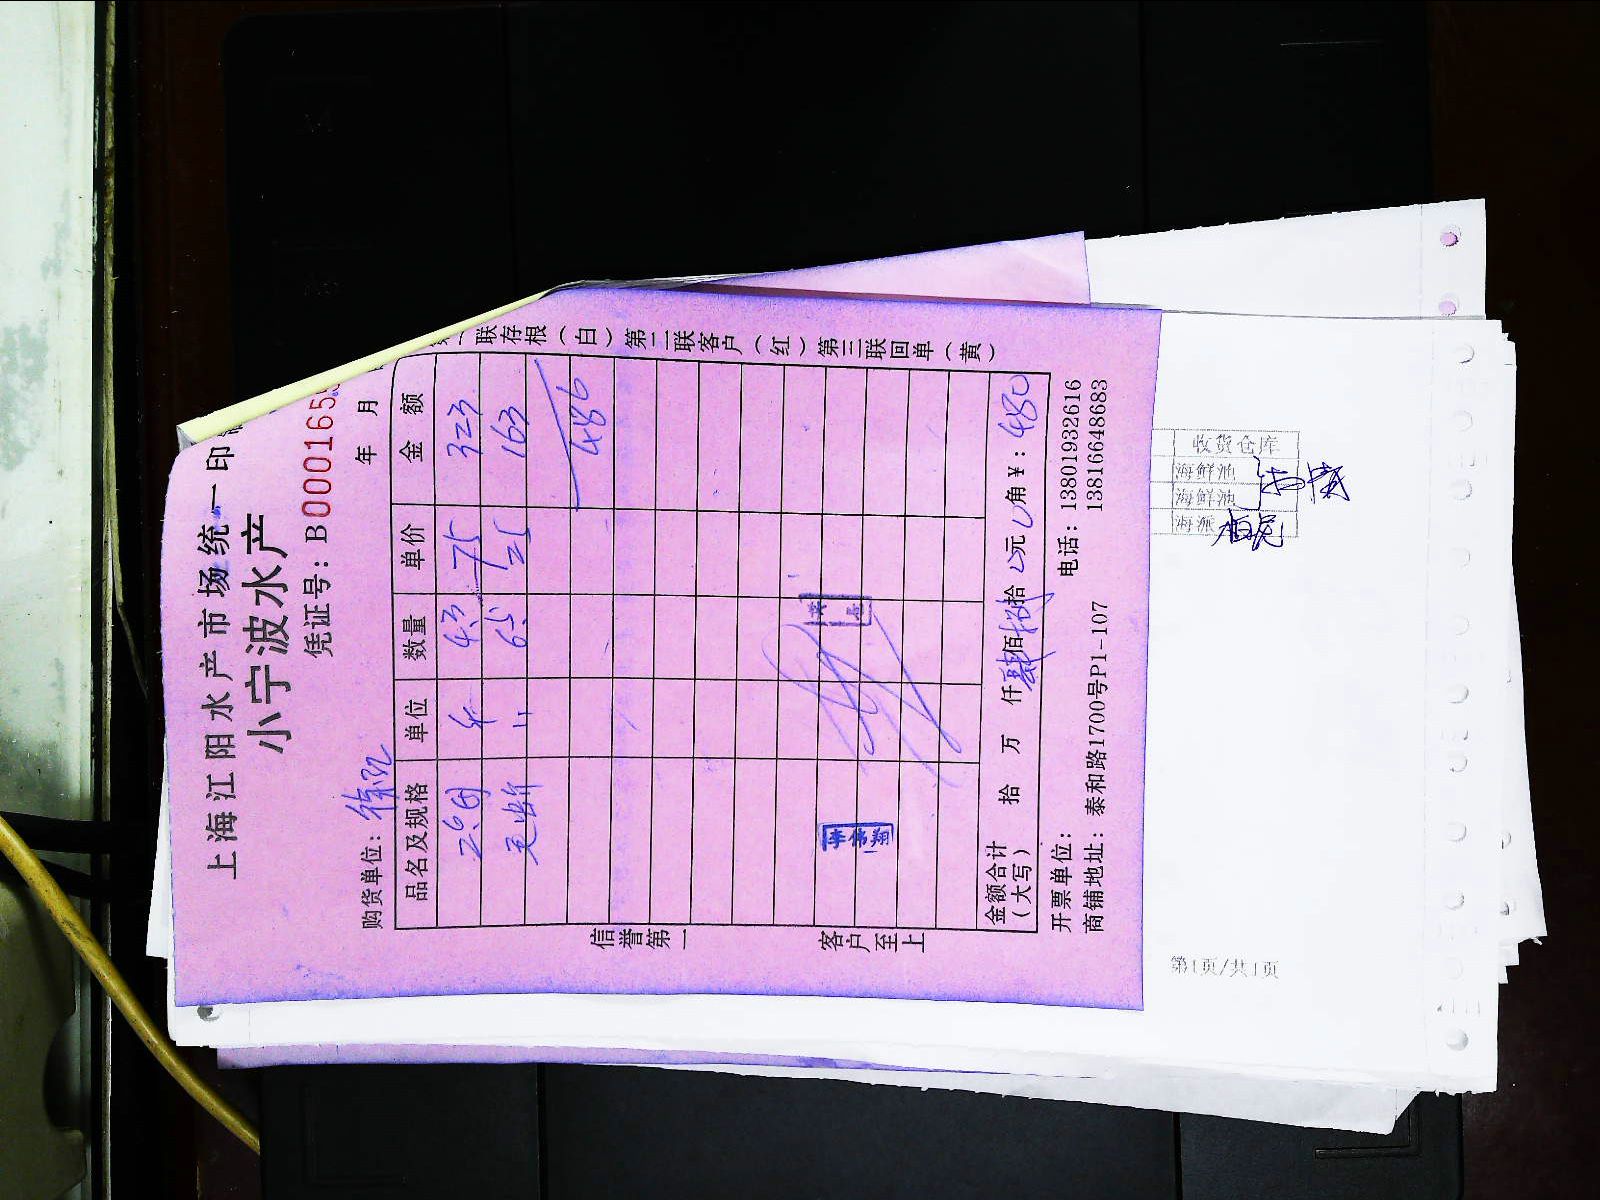 上海江阳水产市场统一印
小宁波水产
凭证号：B 000165
年 月
购货单位：徐
品名及规格 单位 数量 单价 金额
4.3 75 323
〃 6.5 25 163
486
李伟翔
金额合计（大写） 拾 万 仟 肆佰捌拾 元 角 ¥：480
开票单位：
电话：13801932616
13816648683
商铺地址：泰和路1700号P1-107
信誉第一 客户至上
联存根（白）第二联客户（红）第三联回单（黄）
收货仓库
海鲜池
海鲜池
海派
第1页/共1页